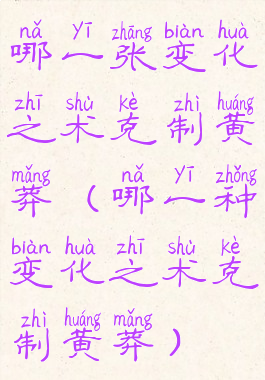 nǎ yī zhāng biàn huà
哪一张变化
zhī shù kè zhì huáng
之术克制黄
mǎng nǎ yī zhǒng
莽（哪一种
biàn huà zhī shù kè
变化之术克
zhì huáng mǎng
制黄莽）